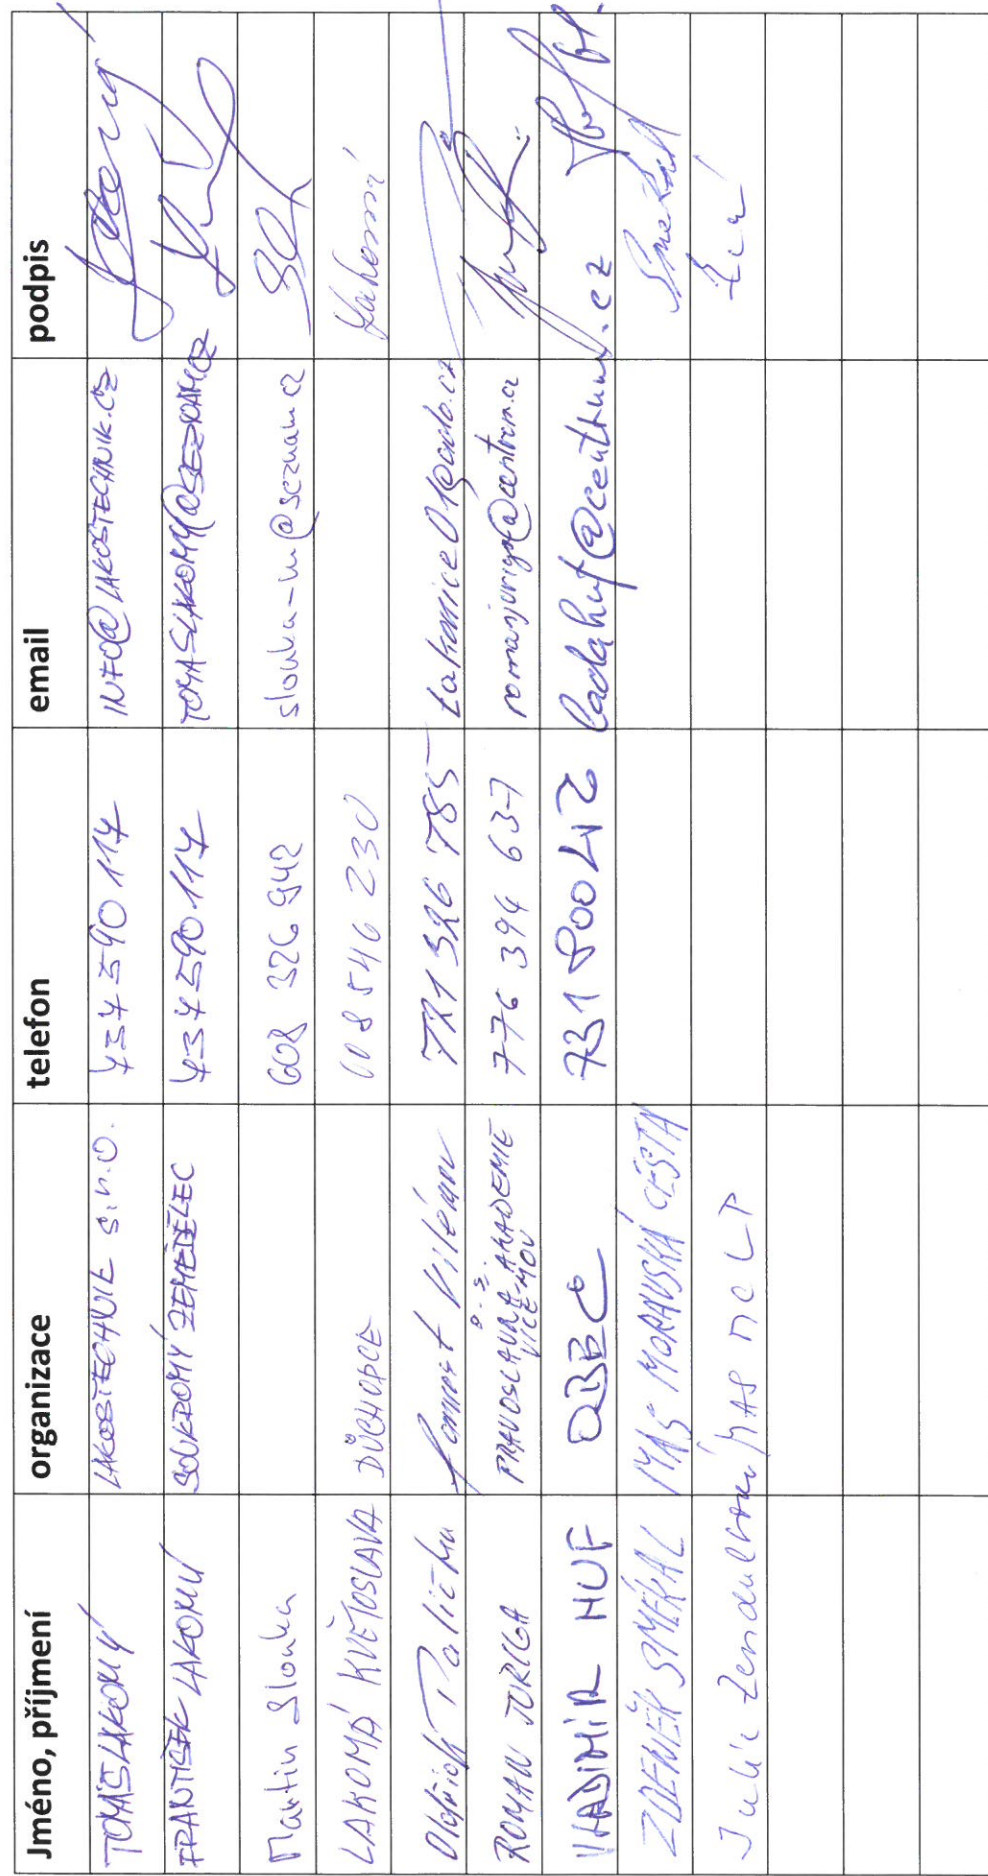 Jméno, příjmení organizace telefon email podpis
TOMÁŠ LAKOMÝ LAKOSTECHNIK s.r.o. 737590117 INFO@LAKOSTECHNIK.CZ
FRANTIŠEK LAKOMÝ SOUKROMÝ ZEMĚDĚLEC 737590117 TOMASLAKOMY@SEZNAM.CZ
Martin Slouka 608 326 942 slouka-m@seznam.cz
LAKOMÁ KVĚTOSLAVA DŮCHODCE 608 546 230 Lakomá
Oldřich 721 526 785
ROMAN JURIGA PRAVOSLAVNÁ AKADEMIE 776 394 637 romanjuriga@centrum.cz
o.s. VILÉMOV
VLADIMÍR HUF OBEC 731 800 42 ladahuf@centrum.cz
ZDENĚK SMÉKAL MAS MORAVSKÁ CESTA Smékal
Julie Zendulková MAS